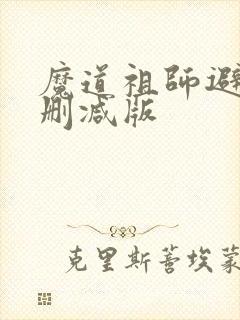 魔道祖师避
删减版
克里斯蒂埃蒙